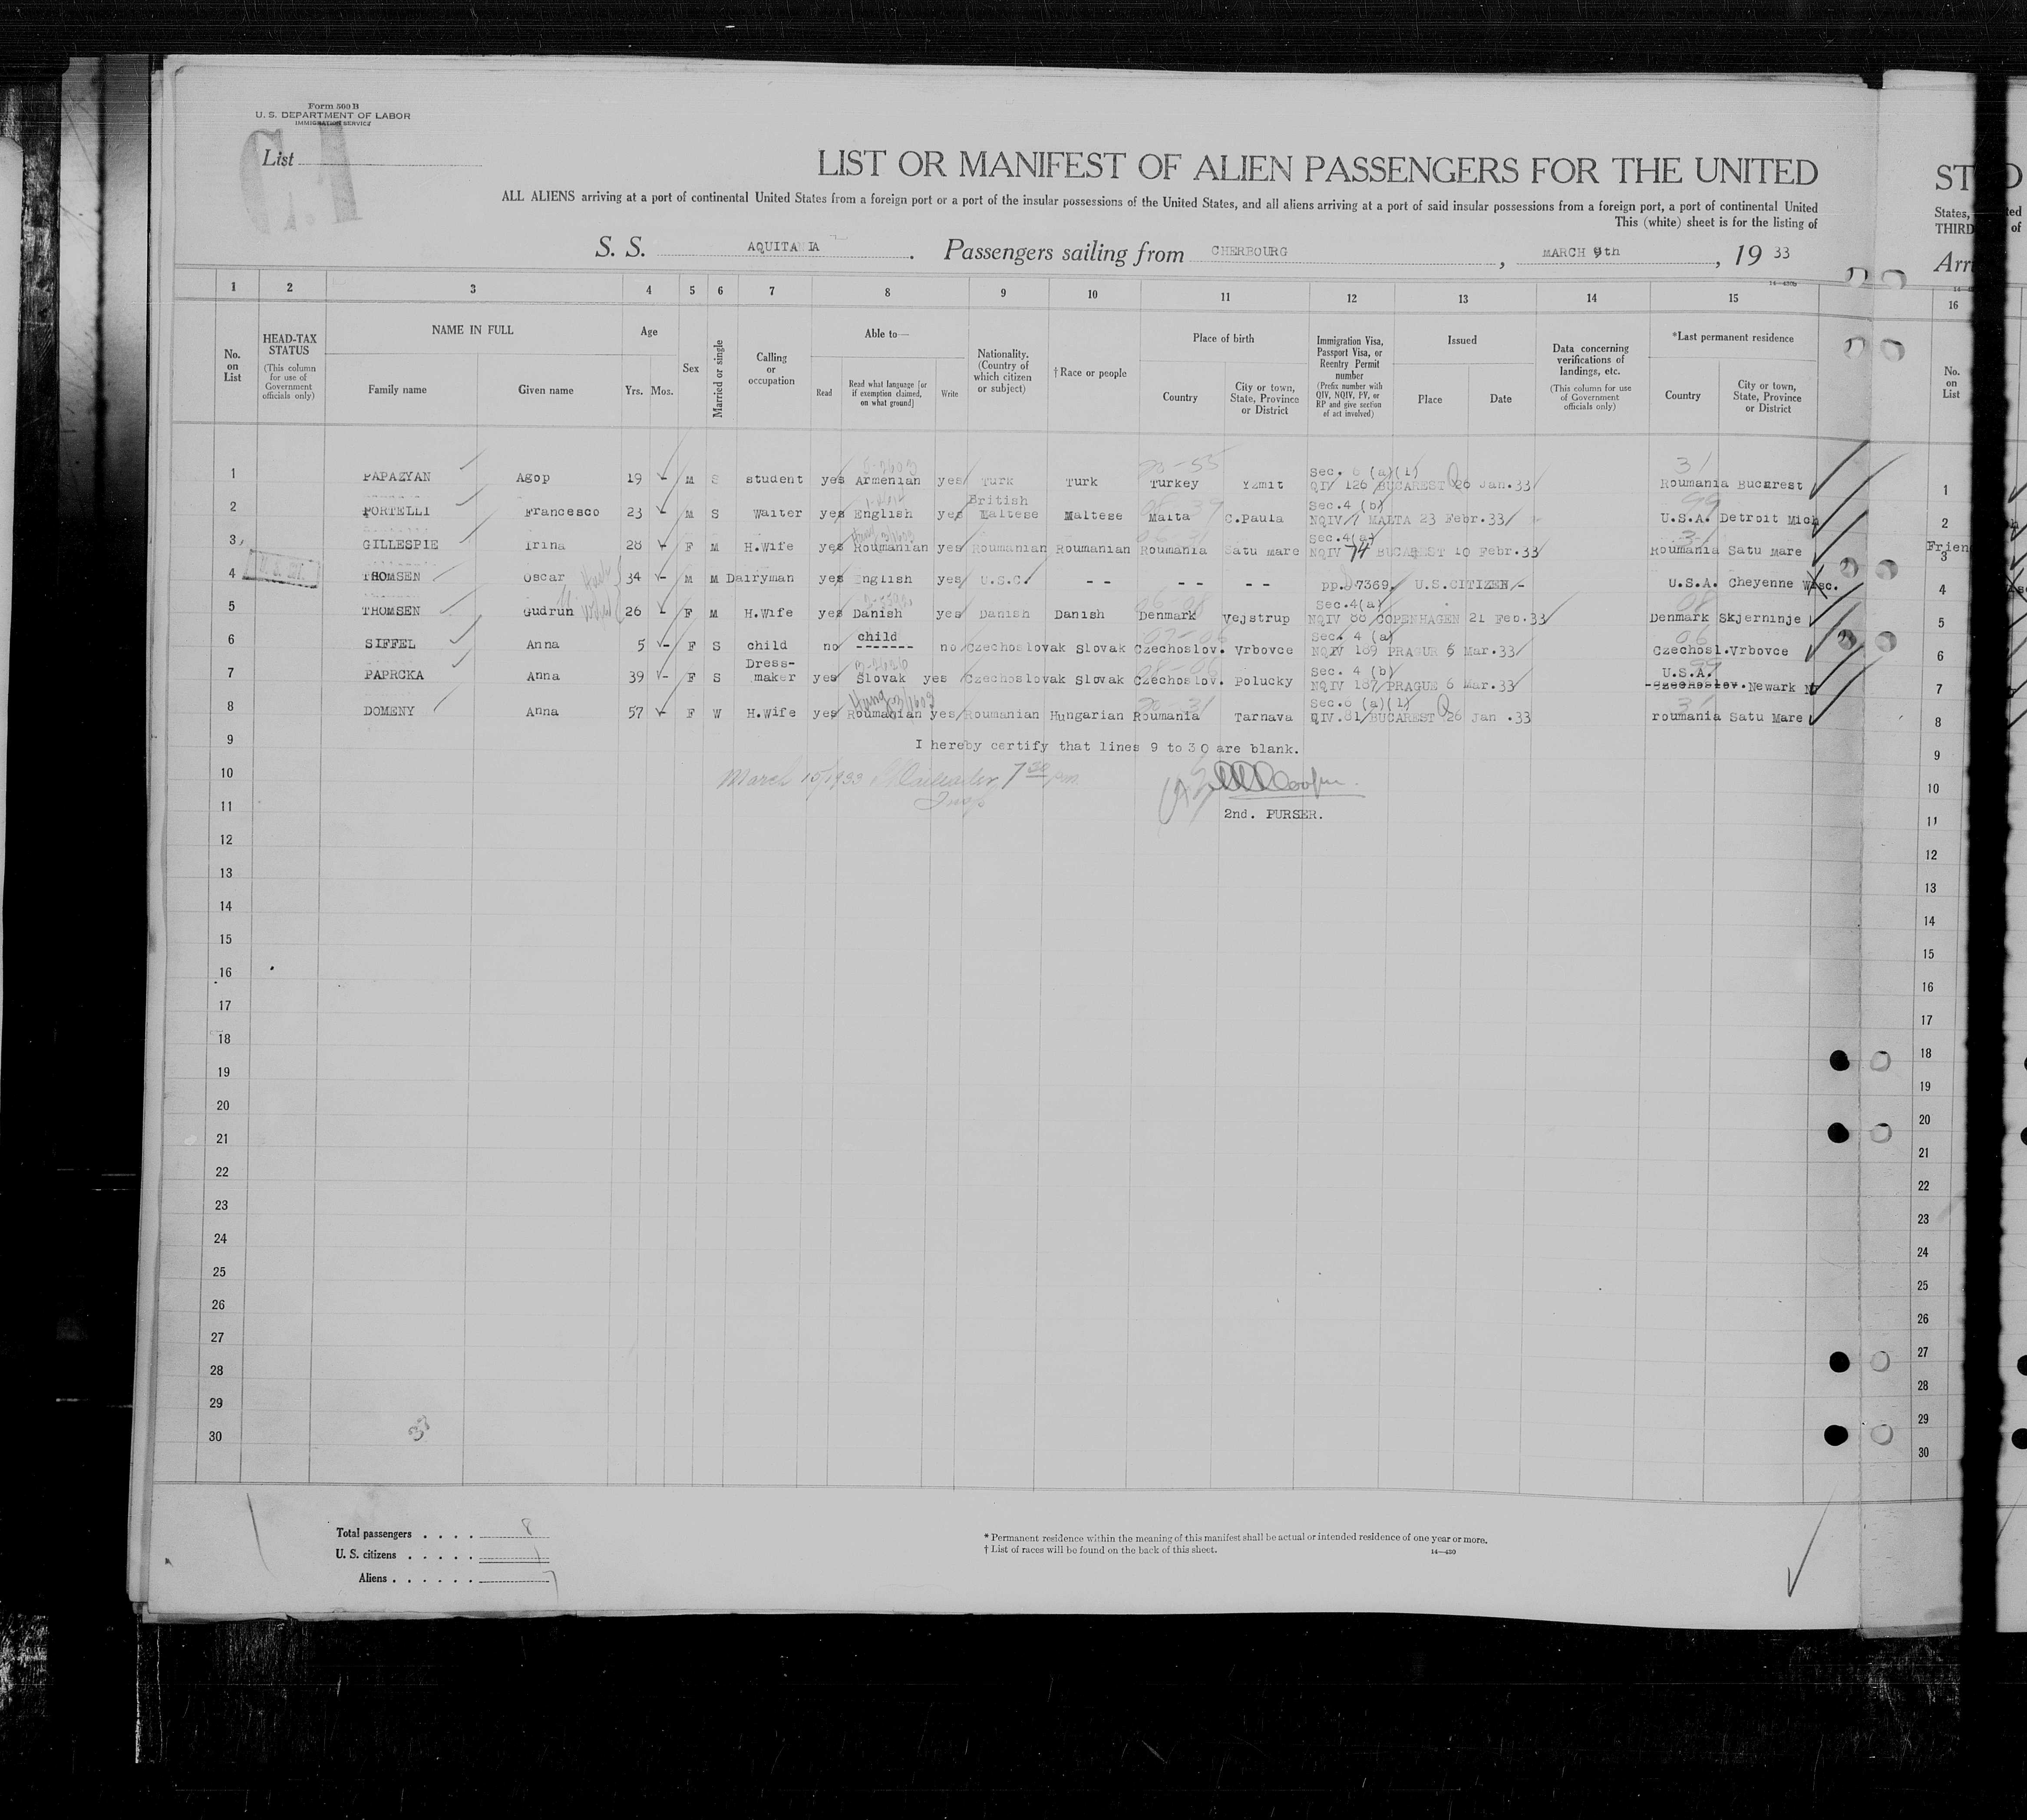 Form 500 B
U. S. DEPARTMENT OF LABOR
IMMIGRATION SERVICE
List
LIST OR MANIFEST OF ALIEN PASSENGERS FOR THE UNITED
ALL ALIENS arriving at a port of continental United States from a foreign port or a port of the insular possessions of the United States, and all aliens arriving at a port of said insular possessions from a foreign port, a port of continental United
This (white) sheet is for the listing of
S. S. AQUITANIA. Passengers sailing from CHERBOURG, MARCH 9th, 19 33
1 2 3 4 5 6 7 8 9 10 11 12 13 14 15 16
No. on List
HEAD-TAX STATUS (This column for use of Government officials only)
NAME IN FULL Family name Given name
Age Yrs. Mos.
Sex
Married or single
Calling or occupation
Able to— Read Read what language [or if exemption claimed, on what ground] Write
Nationality. (Country of which citizen or subject)
†Race or people
Place of birth Country City or town, State, Province or District
Immigration Visa, Passport Visa, or Reentry Permit number (Prefix number with QIV, NQIV, PV, or RP and give section of act involved)
Issued Place Date
Data concerning verifications of landings, etc. (This column for use of Government officials only)
*Last permanent residence Country City or town, State, Province or District
No. on List
1 PAPAZYAN Agop 19 - M S student yes Armenian yes Turk Turk Turkey Yzmit Sec. 6 (a)(1) QIV 126 BUCAREST 26 Jan.33 Roumania Bucarest 1
2 PORTELLI Francesco 23 - M S Waiter yes English yes British Maltese Maltese Malta C.Paula Sec.4 (b) NQIV 7 MALTA 23 Febr.33 U.S.A. Detroit Mich 2
3 GILLESPIE Irina 28 - F M H.Wife yes Roumanian yes Roumanian Roumanian Roumania Satu mare Sec.4(a) NQIV 74 BUCAREST 10 Febr.33 Roumania Satu Mare 3
4 THOMSEN Oscar 34 - M M Dairyman yes English yes U.S.C. -- -- -- pp. 7369. U.S.CITIZEN - U.S.A. Cheyenne Wisc. 4
5 THOMSEN Gudrun 26 - F M H.Wife yes Danish yes Danish Danish Denmark Vejstrup Sec.4(a) NQIV 88 COPENHAGEN 21 Feb.33 Denmark Skjerninje 5
6 SIFFEL Anna 5 - F S child no child ------- no Czechoslovak Slovak Czechoslov. Vrbovce Sec. 4 (a) NQIV 189 PRAGUR 6 Mar.33 Czechosl.Vrbovce 6
7 PAPRCKA Anna 39 - F S Dress-maker yes Slovak yes Czechoslovak Slovak Czechoslov. Polucky Sec. 4 (b) NQIV 187 PRAGUE 6 Mar.33 U.S.A. Czechoslov. Newark NJ 7
8 DOMENY Anna 57 - F W H.Wife yes Roumanian yes Roumanian Hungarian Roumania Tarnava Sec.6 (a)(1) QIV.81 BUCAREST 26 Jan .33 roumania Satu Mare 8
9 I hereby certify that lines 9 to 30 are blank. 9
10 March 15/1933 7 30 pm 10
11 Insp 2nd. PURSER. 11
12 12
13 13
14 14
15 15
16 16
17 17
18 18
19 19
20 20
21 21
22 22
23 23
24 24
25 25
26 26
27 27
28 28
29 29
30 30
33
Total passengers . . . . 8
U. S. citizens . . . . . 1
Aliens . . . . . . 7
* Permanent residence within the meaning of this manifest shall be actual or intended residence of one year or more.
† List of races will be found on the back of this sheet.
14—430